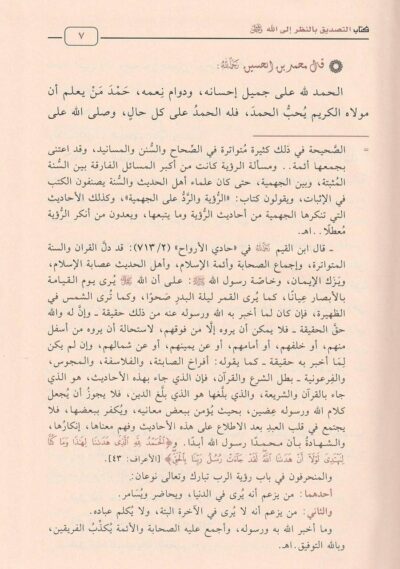 كتاب التصديق بالنظر إلى الله ﷻ
٧
قال محمد بن الحسين رحمه الله:
الحمد لله على جميل إحسانه، ودوام نِعمه، حَمْدَ مَنْ يعلم أن
مولاه الكريم يُحبُّ الحمدَ، فله الحمدُ على كل حالٍ، وصلى الله على
= الصَّحيحة في ذلك كثيرة مُتواترة في الصِّحاح والسُّنن والمسانيد، وقد اعتنى
بجمعها أئمة.. ومسألة الرؤية كانت من أكبر المسائل الفارقة بين السنة
المُثبتة، وبين الجهمية، حتى كان علماء أهل الحديث والسُّنة يصنفون الكتب
في الإثبات، ويقولون كتاب: «الرؤية والرَّدُّ على الجهمية»، وكذلك الأحاديث
التي تنكرها الجهمية من أحاديث الرُّؤية وما يتبعها، ويعدون من أنكر الرُّؤية
مُعطلًا..اهـ.
ـ قال ابن القيم رحمه الله في «حادي الأرواح» (٧١٣/٢): قد دلَّ القرآن والسنة
المتواترة، وإجماع الصحابة وأئمة الإسلام، وأهل الحديث عصابة الإسلام،
ويَزَك الإيمان، وخاصّة رسول الله ﷺ: على أن الله ﷻ يُرى يوم القيامة
بالأبصار عِيانًا، كما يُرى القمر ليلة البدرِ صَحوًا، وكما تُرى الشمس في
الظهيرة، فإن كان لما أخبر به الله ورسوله عنه من ذلك حقيقة ـ وإنَّ له والله
حقُّ الحقيقة ـ فلا يمكن أن يروه إلَّا من فوقهم، لاستحالة أن يروه من أسفل
منهم، أو خلفهم، أو أمامهم، أو عن يمينهم، أو عن شمالهم، وإن لم يكن
لِمَا أخبر به حقيقة ـ كما يقوله: أفراخ الصابئة، والفلاسفة، والمجوس،
والفِرعونية ـ بطل الشرع والقرآن، فإن الذي جاء بهذه الأحاديث، هو الذي
جاء بالقرآن والشريعة، والذي بلَّغها هو الذي بلَّغ الدين، فلا يجوزُ أن يُجعل
كلام الله ورسوله عِضين، بحيث يُؤمن ببعض معانيه، ويُكفر ببعضها، فلا
يجتمع في قلب العبدِ بعد الاطلاع على هذه الأحاديث وفهم معناها، إنكارُها،
والشهادةُ بأن محمدًا رسول الله أبدًا. و﴿الْحَمْدُ لِلَّهِ الَّذِي هَدَانَا لِهَٰذَا وَمَا كُنَّا
لِنَهْتَدِيَ لَوْلَا أَنْ هَدَانَا اللَّهُ لَقَدْ جَاءَتْ رُسُلُ رَبِّنَا بِالْحَقِّ﴾ [الأعراف: ٤٣].
والمنحرفون في باب رؤية الرب تبارك وتعالى نوعان:
أحدهما: من يزعم أنه يُرى في الدنيا، ويحاضر ويُسامر.
والثاني: من يزعم أنه لا يُرى في الآخرة البتة، ولا يُكلم عباده.
وما أخبر الله به ورسوله، وأجمع عليه الصحابة والأئمة يُكذِّبُ الفريقين،
وبالله التوفيق.اهـ.